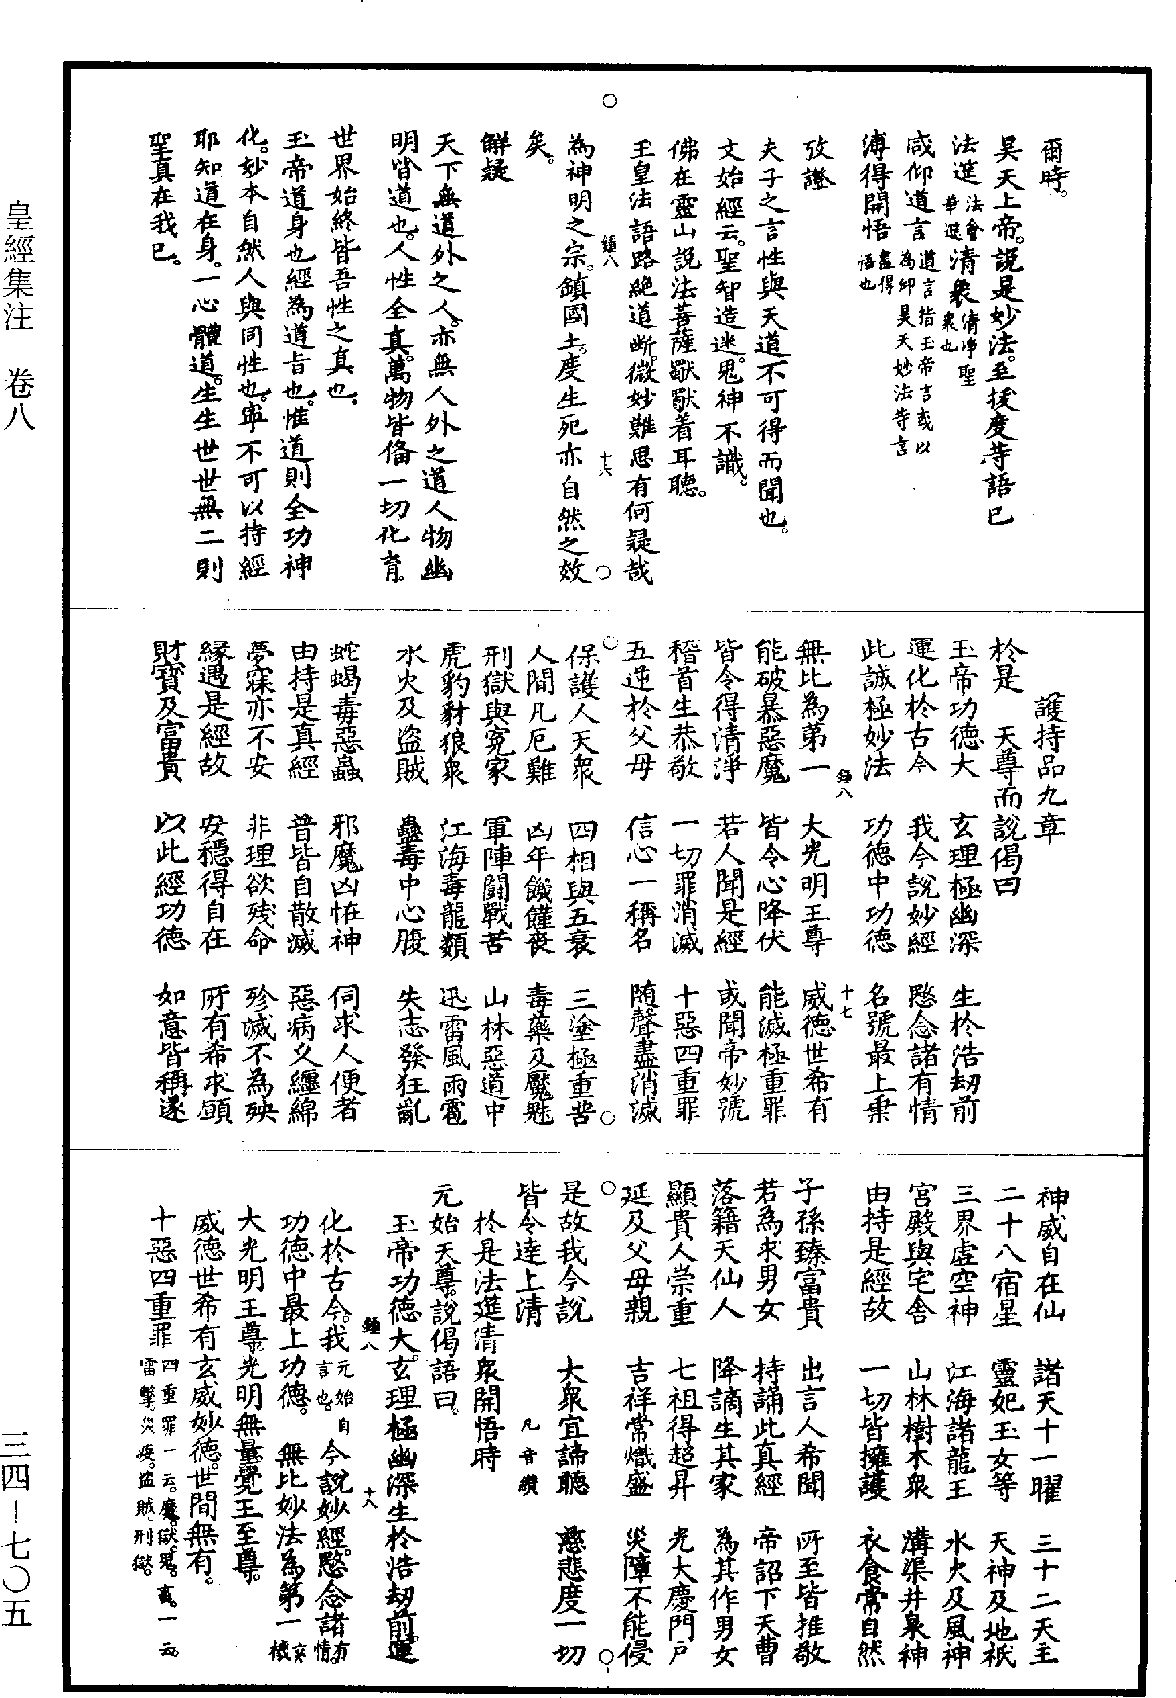 皇經集注　卷八
三四—七〇五
爾時。
昊天上帝。說是妙法。至後度等語已
法筵法會華筵清衆清淨聖衆也
咸仰道言道言指玉帝言或以為卽昊天妙法等言
溥得開悟盡得悟也
攷證
夫子之言性與天道不可得而聞也。
文始經云。聖智造迷。鬼神不識。
佛在靈山說法菩薩獸獸着耳聽。
玉皇法語路絕道斷。微妙難思有何疑哉
鍾八　十六
為神明之宗。鎮國土。度生死亦自然之效
矣。
解疑
天下無道外之人。亦無人外之道人物幽
明皆道也。人性全真。萬物皆俻一切化育。
世界始終皆吾性之真也。
玉帝道身也經為道旨也。惟道則全功神
化。妙本自然人與同性也。寧不可以持經
耶知道在身。一心體道。生生世世無二則
聖真在我已。
護持品九章
於是　天尊而說偈曰
玉帝功德大　玄理極幽深　生於浩劫前
運化於古今　我今說妙經　愍念諸有情
此誠極妙法　功德中功德　名號最上乗
鍾八　十七
無比為第一　大光明王尊　威德世希有
能破暴惡魔　皆令心降伏　能滅極重罪
皆令得清淨　若人聞是經　或聞帝妙號
稽首生恭敬　一切罪消滅　十惡四重罪
五逆於父母　信心一稱名　隨聲盡消滅
保護人天衆　四相與五衰　三塗極重苦
人間凡厄難　凶年饑饉喪　毒藥及魘魅
刑獄與冤家　軍陣鬭戰苦　山林惡道中
虎豹豺狼衆　江海毒龍類　迅雷風雨雹
水火及盜賊　蠱毒中心腹　失志發狂亂
蛇蝎毒惡蟲　邪魔凶恠神　伺求人便者
由持是真經　普皆自散滅　惡病久纏綿
夢寐亦不安　非理欲殘命　殄滅不為殃
緣遇是經故　安穩得自在　所有希求願
財寶及富貴　以此經功德　如意皆稱遂
神威自在仙　諸天十一曜　三十二天主
二十八宿星　靈妃玉女等　天神及地祇
三界虛空神　江海諸龍王　水火及風神
宮殿與宅舍　山林樹木衆　溝渠井泉神
由持是經故　一切皆擁護　衣食常自然
子孫臻富貴　出言人希聞　所至皆推敬
若為求男女　持誦此真經　帝詔下天曹
落籍天仙人　降謫生其家　為其作男女
顯貴人崇重　七祖得超昇　光大慶門戶
延及父母親　吉祥常熾盛　災障不能侵
是故我今說　大衆宜諦聽　慈悲度一切
皆令達上清　凡音嚽
於是法筵清衆開悟時
元始天尊。說偈語曰。
玉帝功德大。玄理極幽深生於浩劫前。運
鍾八　十八
化於古今。我元始自言也。今說妙經。愍念諸有情
功德中最上功德。無比妙法為第一
大光明王尊。光明無量覺王至尊。
威德世希有玄威妙德。世間無有。
十惡四重罪四重罪一云。魔。獄。鬼。畜。一云雷擊。災疫。盜賊。刑獄。